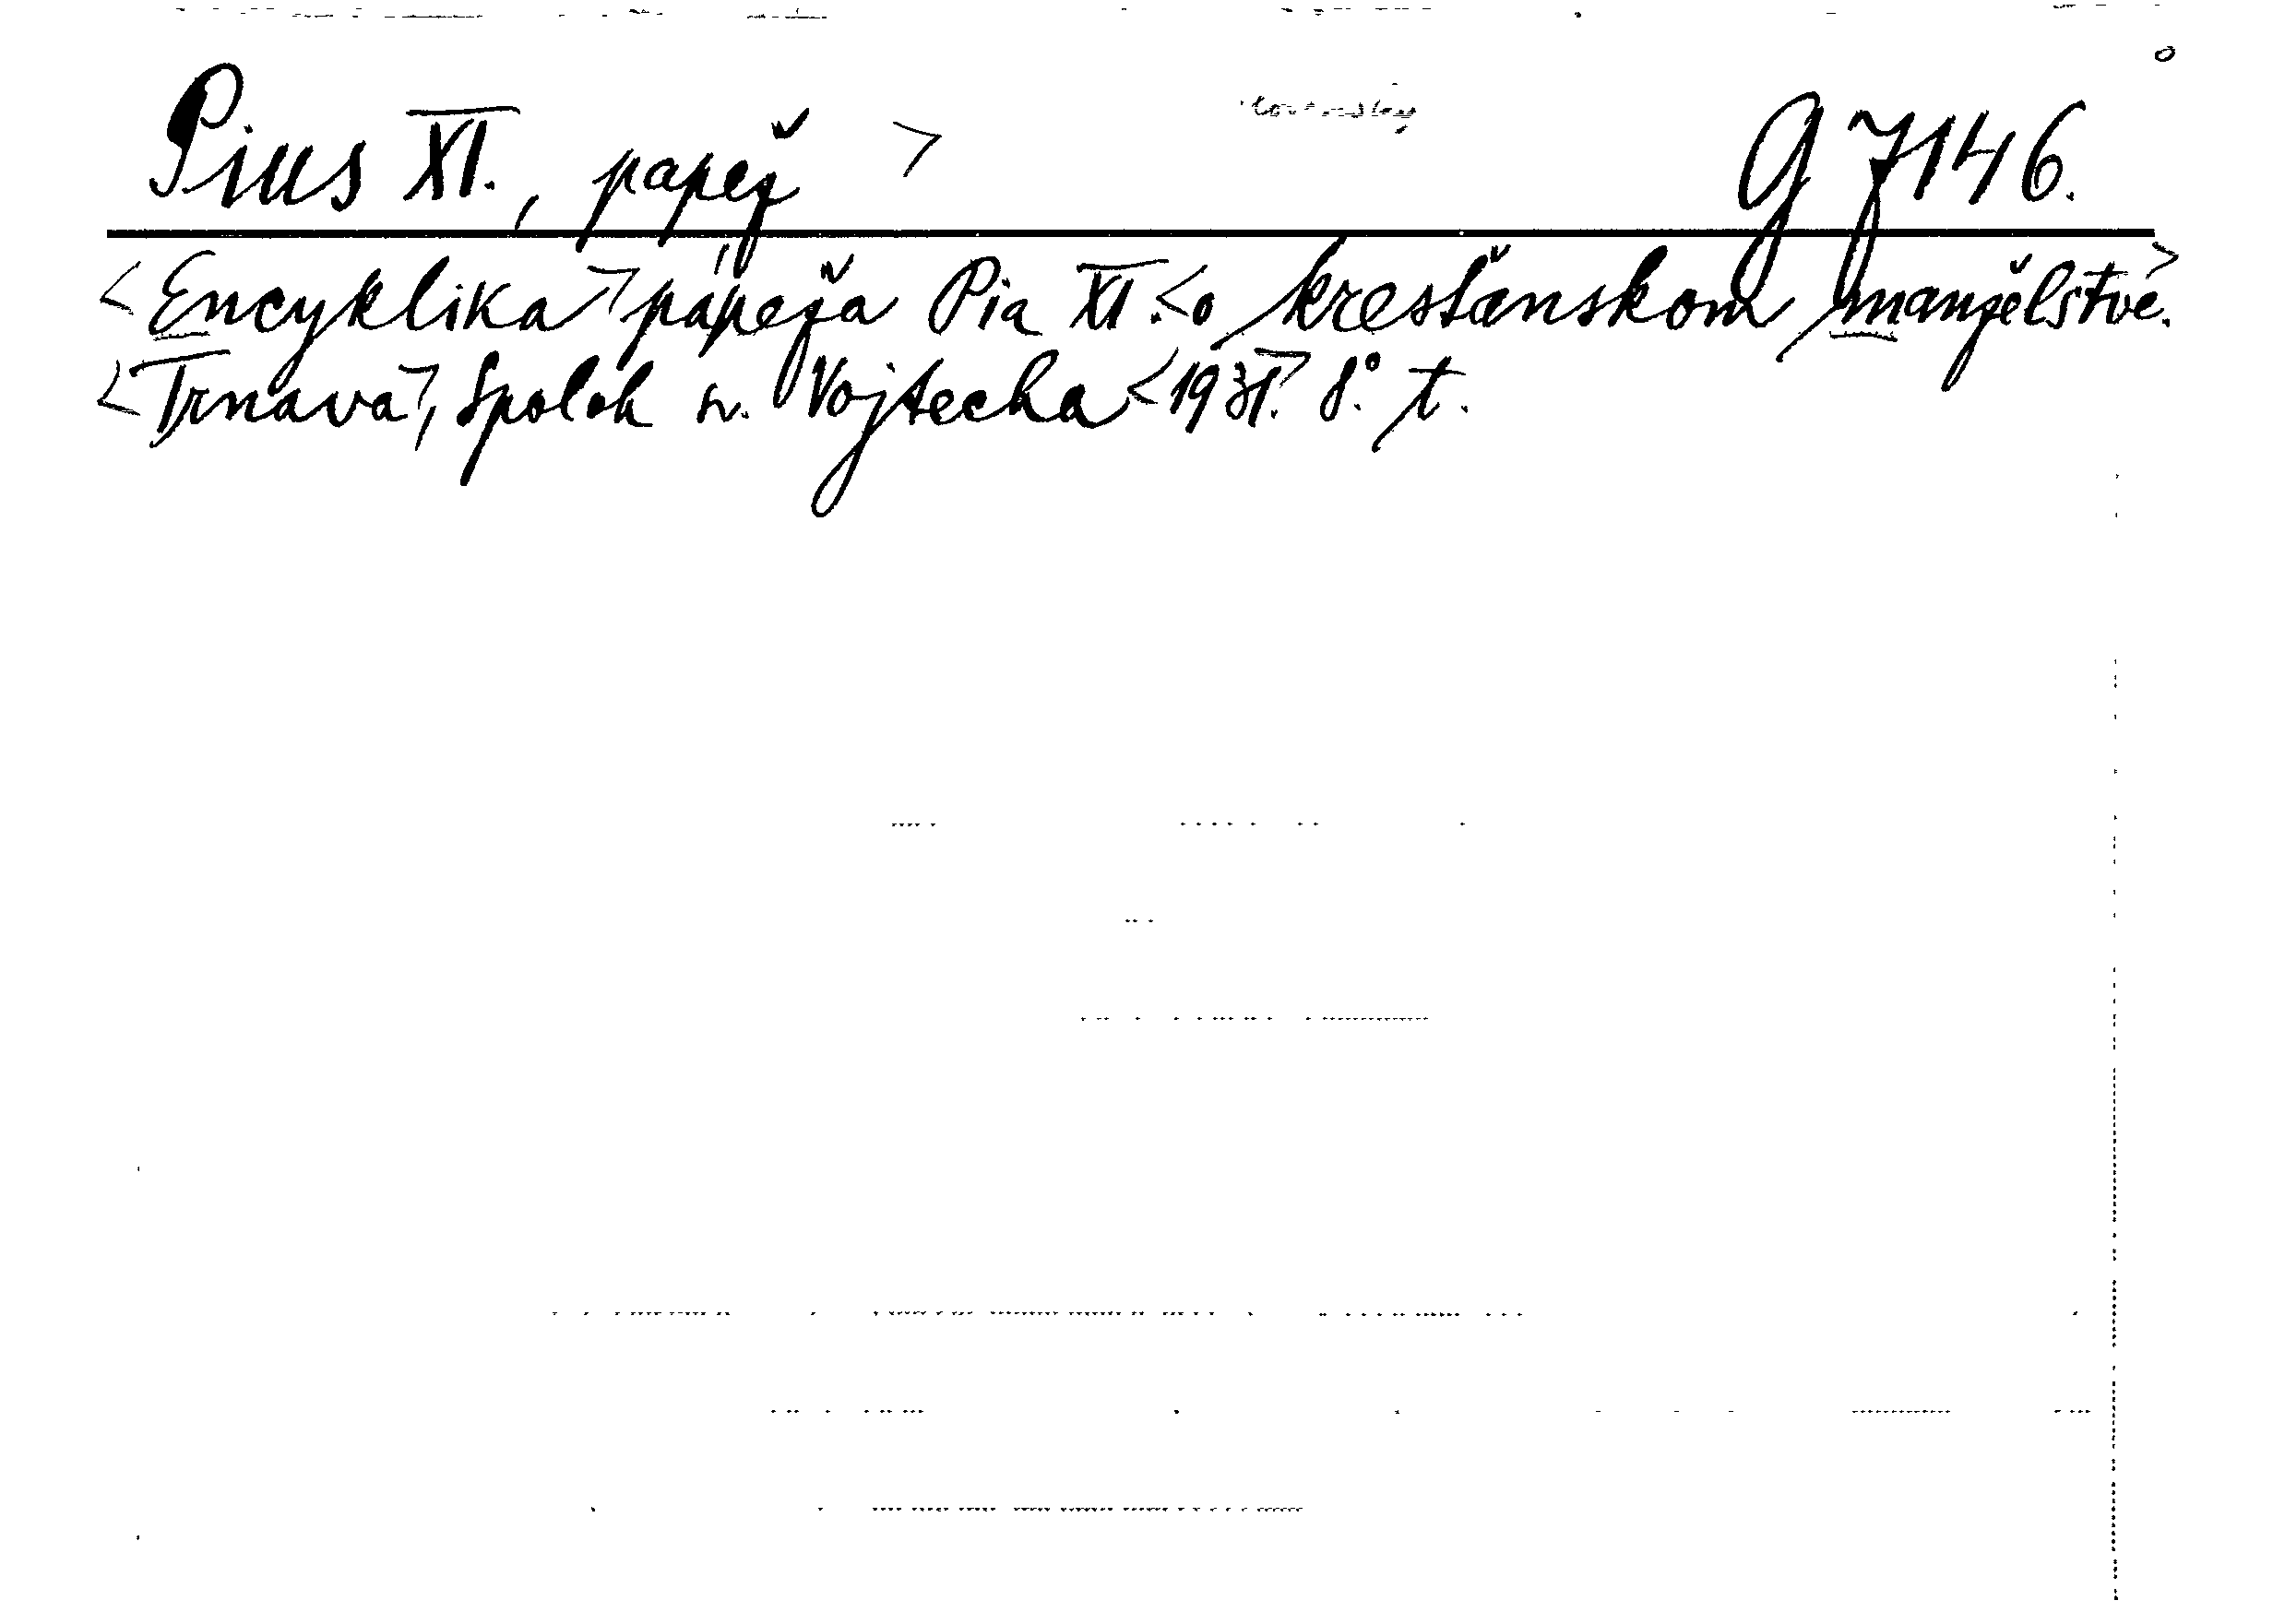 Pius XI., papež > G 7146.
<Encyklika> pápeža Pia XI. <o kresťanskom manželstve.>
<Trnava>, Spolok sv. Vojtecha <1931.> 8°. t.